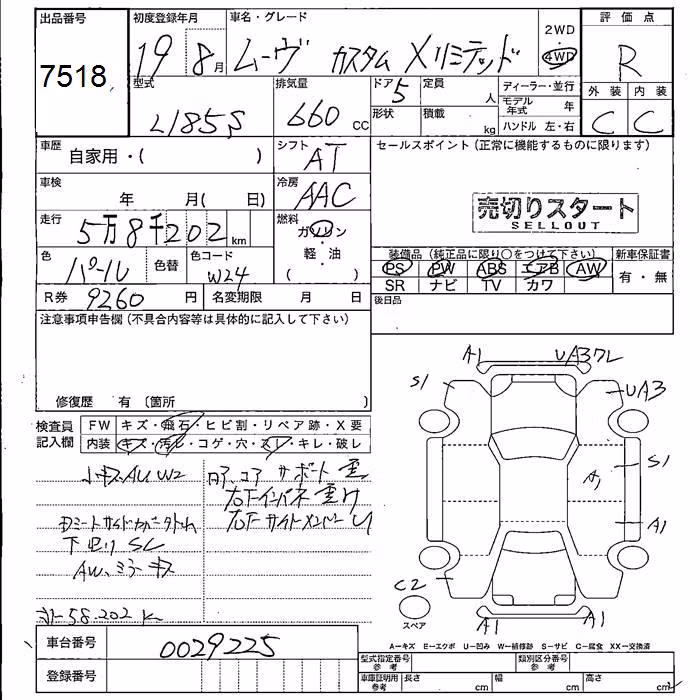 出品番号
7518
初度登録年月
19 8月
車名・グレード
ムーヴ カスタム Xリミテッド
2WD
4WD
評価点
R
型式
L185S
排気量
660 CC
ドア 5
定員 人
形状
積載 kg
ディーラー・並行
モデル年式 年
ハンドル 左・右
外装 内装
C C
車歴
自家用・( )
シフト
AT
セールスポイント(正常に機能するものに限ります)
車検
年 月( 日)
冷房
AAC
売切りスタート
SELLOUT
走行
5万8千202 km
燃料
ガソリン
・
軽・油
( )
色
パール
色替
色コード
W24
装備品(純正品に限り○をつけて下さい)
PS PW ABS エアB AW
SR ナビ TV カワ
新車保証書
有・無
R券 9260 円
名変期限 月 日
後日品
注意事項申告欄(不具合内容等は具体的に記入して下さい)
修復歴 有〔箇所 〕
検査員記入欄
FW キズ・飛石・ヒビ割・リペア跡・X要
内装 キズ・汚レ・コゲ・穴・スレ・キレ・破レ
小キズ AU W2
下廻り SC
AW、ミラーキズ
58.202 K
コア サポート 歪
右Fインパネ 歪け
右Fサイドメンバー
A1
UA3
S1
UA3
A1
S1
A1
C2
A1
A1
スペア
A—キズ E—エクボ U—凹み W—補修跡 S—サビ C—腐食 XX—交換済
車台番号
0029225
登録番号
型式指定番号
参考
類別区分番号
参考
車庫証明用
参考
長さ cm
幅 cm
高さ cm